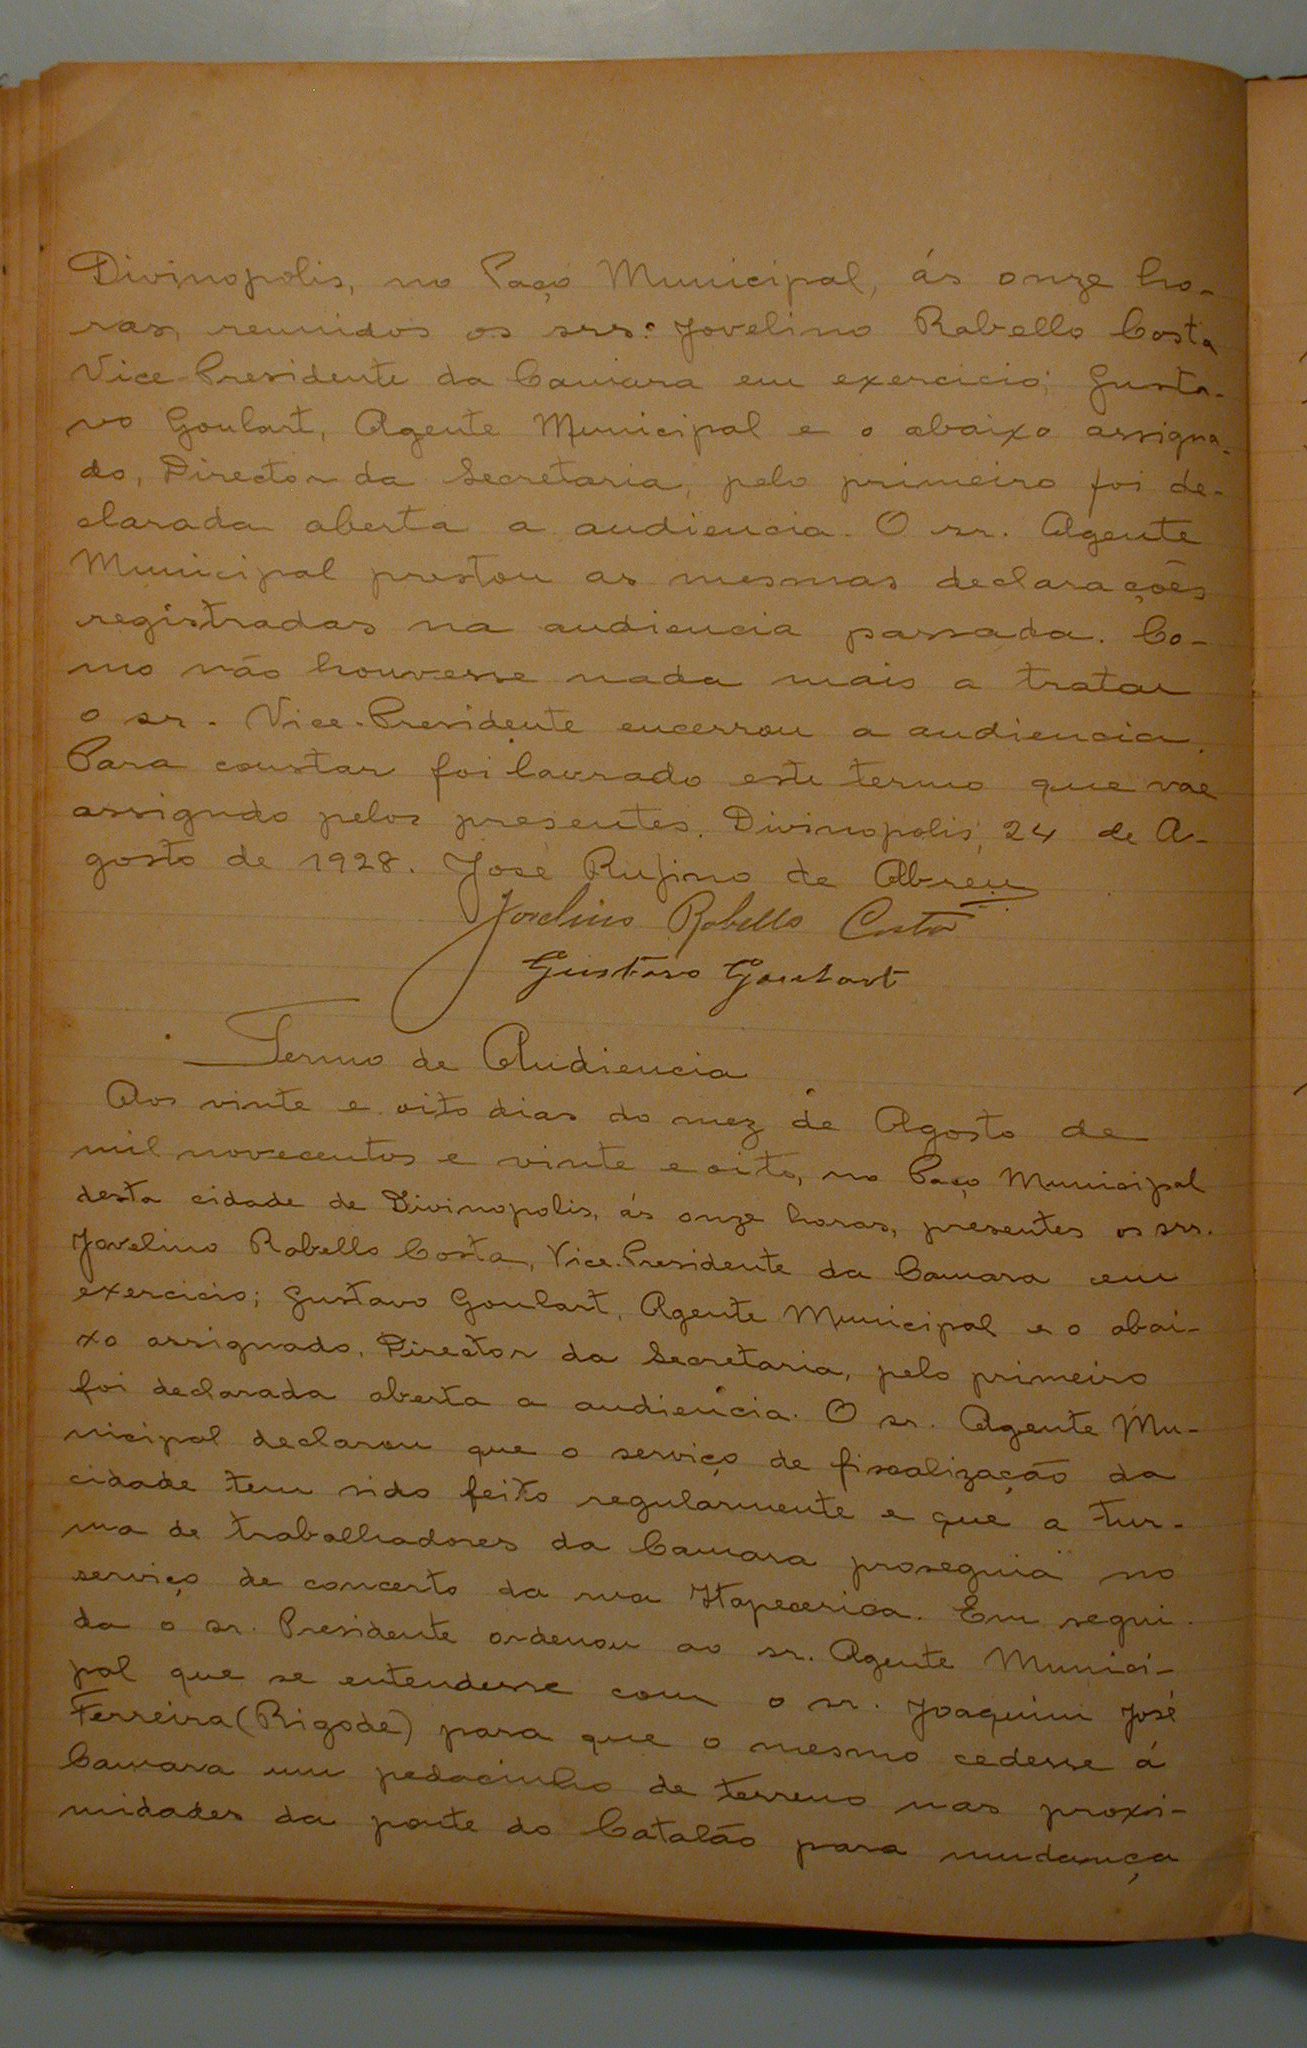 Divinopolis, no Paço Municipal, ás onze ho-
ras, reunidos os srs: Jovelino Rabello Costa
Vice-Presidente da Camara em exercicio; Gusta-
vo Goulart, Agente Municipal e o abaixo assigna-
do, Director da Secretaria, pelo primeiro foi de-
clarada aberta a audiencia. O sr. Agente
Municipal prestou as mesmas declarações
registradas na audiencia passada. Co-
mo não houvesse nada mais a tratar
o sr. Vice-Presidente encerrou a audiencia.
Para constar foi lavrado este termo que vae
assignado pelos presentes. Divinopolis, 24 de A-
gosto de 1928. José Rufino de Abreu
Jovelino Rabello Costa
Gustavo Goulart
Termo de Audiencia
Aos vinte e oito dias do mez de Agosto de
mil novecentos e vinte e oito, no Paço Municipal
desta cidade de Divinopolis, ás onze horas, presentes os srs.
Jovelino Rabello Costa, Vice-Presidente da Camara em
exercicio; Gustavo Goulart, Agente Municipal e o abai-
xo assignado, Director da Secretaria, pelo primeiro
foi declarada aberta a audiencia. O sr. Agente Mu-
nicipal declarou que o serviço de fiscalização da
cidade tem sido feito regularmente e que a tur-
ma de trabalhadores da Camara proseguia no
serviço de concerto da rua Itapecerica. Em segui-
da o sr. Presidente ordenou ao sr. Agente Munici-
pal que se entendesse com o sr. Joaquim José
Ferreira (Rigode) para que o mesmo cedesse á
Camara um pedacinho de terreno nas proxi-
midades da ponte do Catalão para mudança